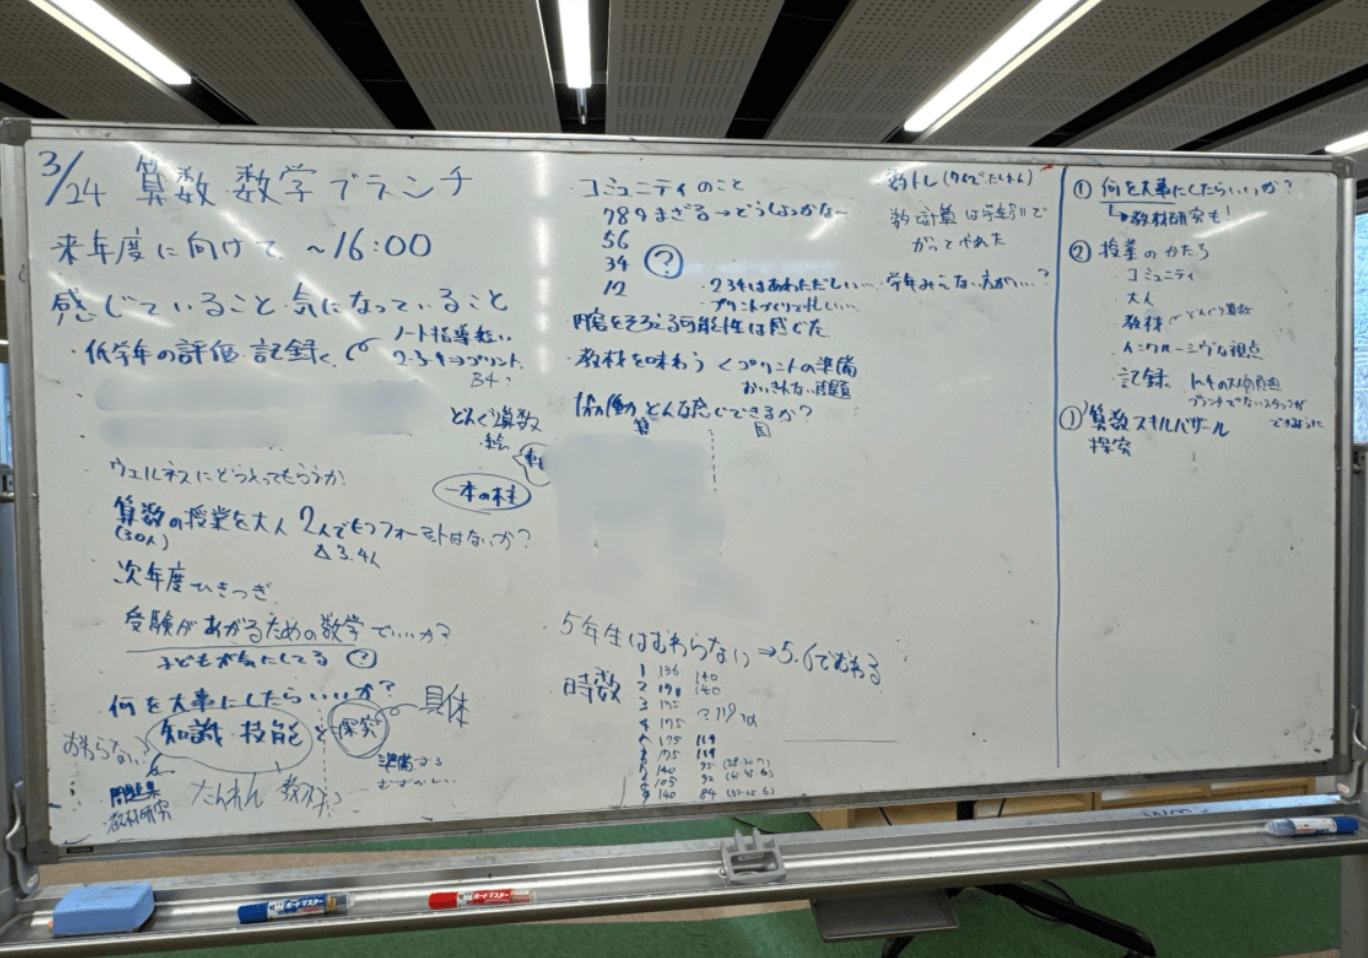 3/24 算数 数学ブランチ
来年度に向けて ~16:00
感じていること 気になっていること
・低学年の評価 記録
ノート指導難しい
2・3・4⇒プリント
B4?
どんぐり算数
絵
一本の柱
ウェルネスにどう入ってもらうか?
算数の授業を大人 2人でもつフォーマットはないか?
(30人)
△3.4人
次年度ひきつぎ
受験があがるための数学でいいか?
子どもが気にしてる ?
何を大事にしたらいいか?
知識 技能と探究
具体
おわらない?
準備する
むずかしい...
問題集
・教材研究
たんれん 教材?
・コミュニティのこと
789まざる→どうしよっかな~
56
34
12
?
・234はあわただしい...
・プリントづくりで忙しい...
内容をそろえる可能性は感じた
・教材を味わう<プリントの準備
おいきれない課題
協働 どんな感じでできるか?
算 国
5年生はおわらない⇒5.6でおわる
時数
1 136 140
2 140
3 175
4 175
175 119
175 119
140 95
105 92
9 140 84
数と計算は学年別で
がっとやれた
・学年みえない方が...?
① 何を大事にしたらいいか?
↳教材研究も!
② 授業のかたち
・コミュニティ
・大人
・教材 どんぐり算数
・インクルーシヴな視点
・記録
ブランチでないスタッフが
できるように
①' 算数スキルバザール
探究
ボードマスター